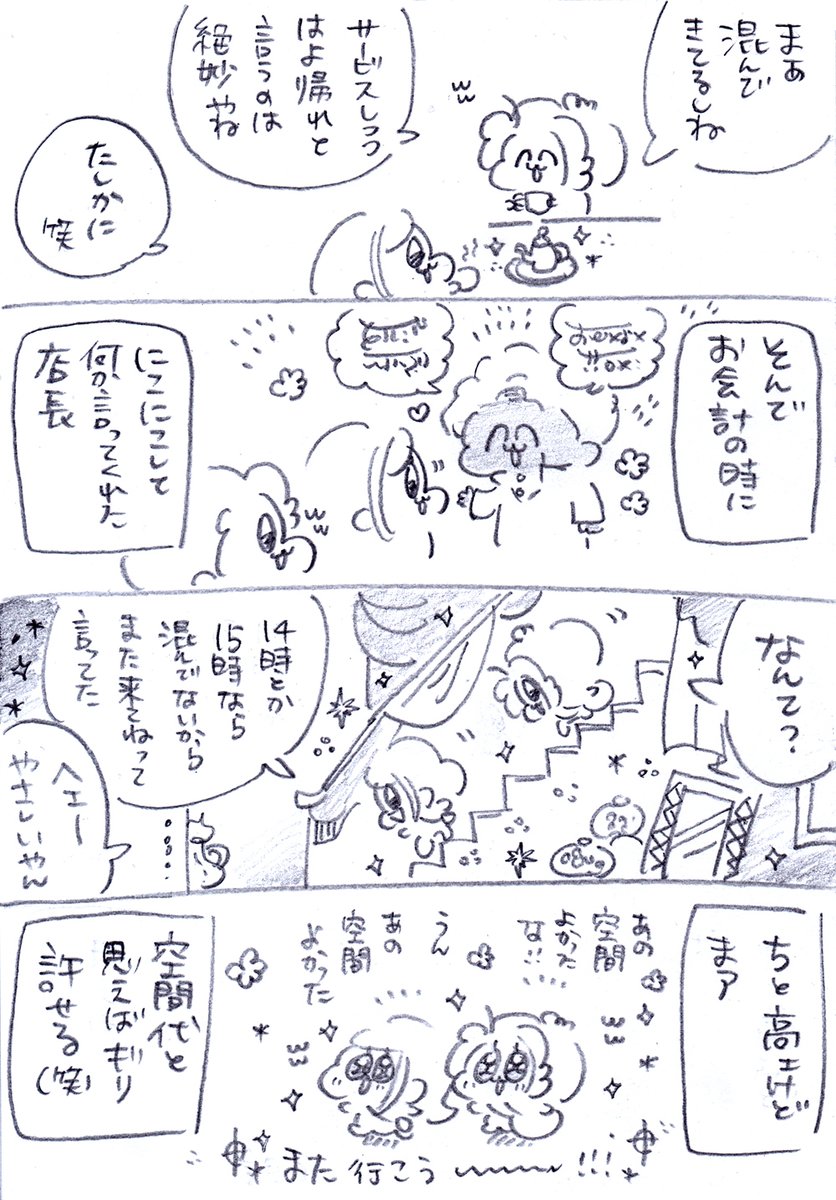 まぁ
混んで
きてるしね
サービスしつつ
はよ帰れと
言うのは
絶妙やね
たしかに
笑
そんで
お会計の時に
にこにこして
何か言ってくれた
店長
なんて?
14時とか
15時なら
混んでないから
また来てねって
言ってた
へェー
やさしいやん
ちと高ェけど
まァ
あの
空間
よかった
な!!
うん
あの
空間
よかった
空間代と
思えばギリ
許せる(笑)
また行こう〜〜〜!!!